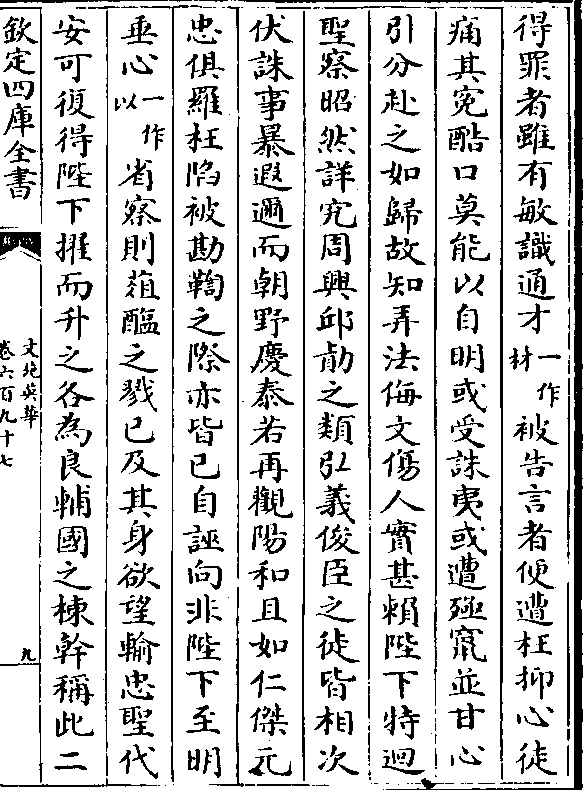 得罪者雖有敏識通才一作材被告言者便遭枉抑心徒
痛其寃酷口莫能以自明或受誅夷或遭殛竄並甘心
引分赴之如歸故知弄法侮文傷人實甚賴陛下特迴
聖察昭然詳究周興邱勣之類弘義俊臣之徒皆相次
伏誅事暴遐邇而朝野慶泰若再覩陽和且如仁傑元
忠俱羅枉陷被勘鞫之際亦皆已自誣向非陛下至明
垂心一作以省察則葅醢之戮已及其身欲望輸忠聖代
安可復得陛下擢而升之各為良輔國之棟幹稱此二
欽定四庫全書
文苑英華
卷六百九十七
九